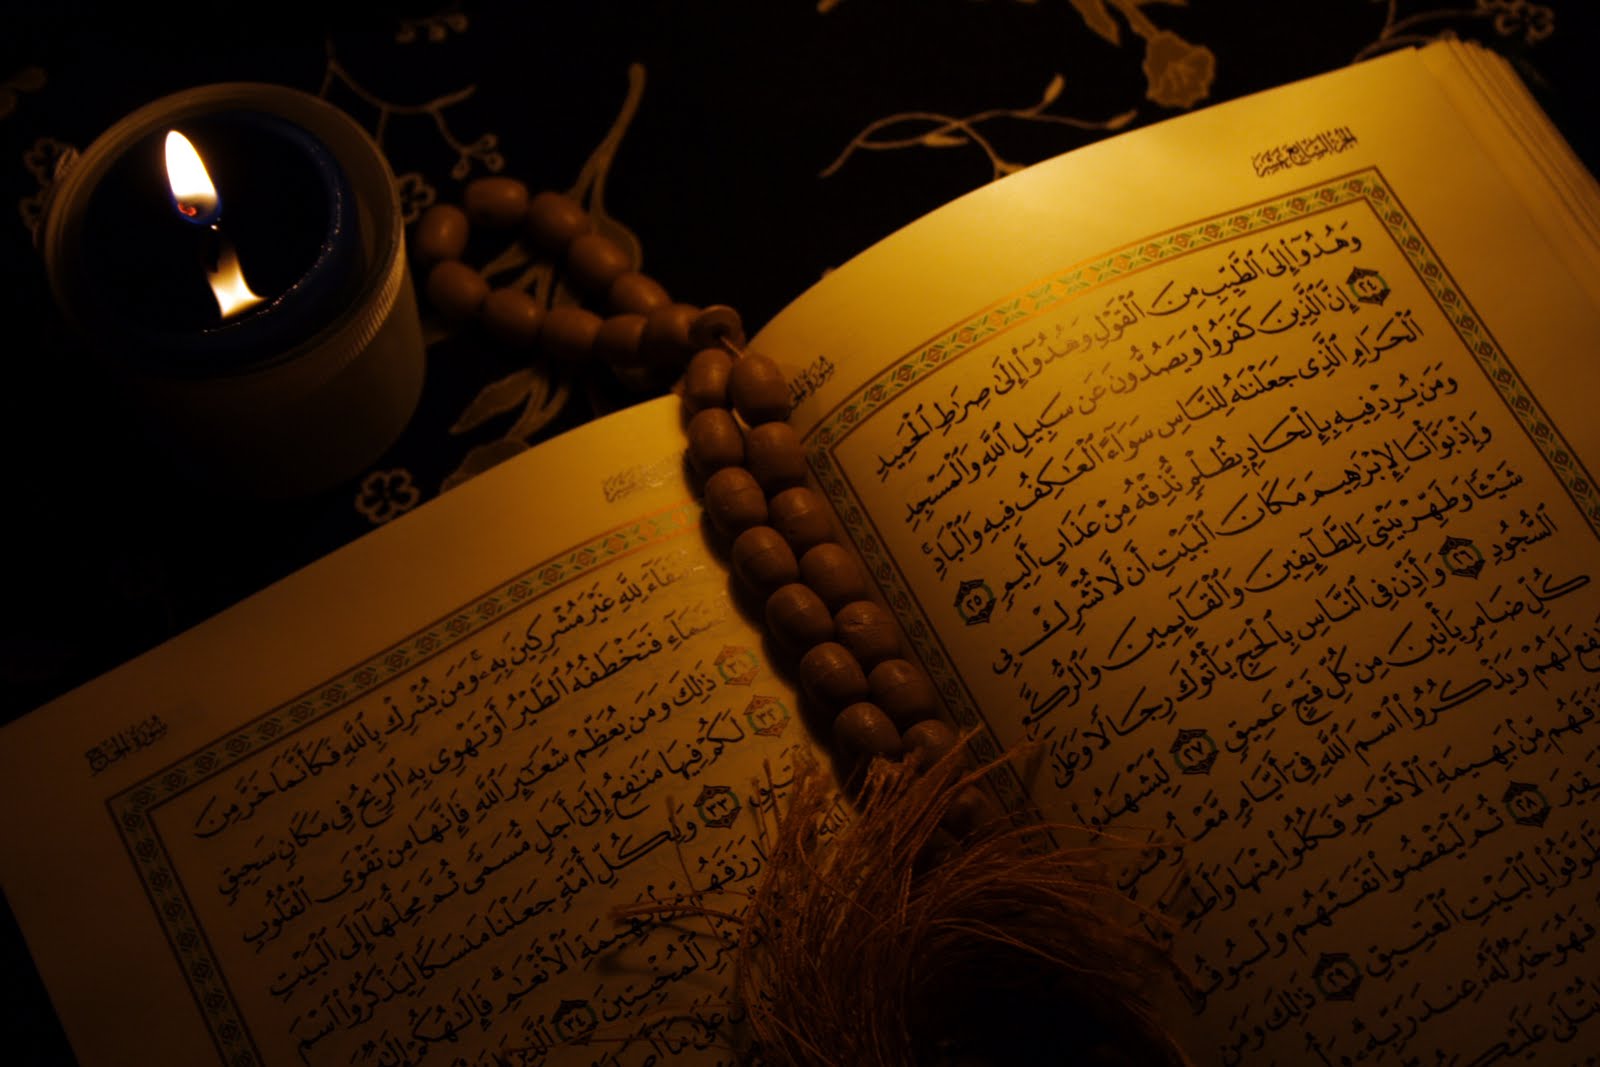 الجزء السابع عشر
سورة الحج
وَهُدُوٓا۟ إِلَى ٱلطَّيِّبِ مِنَ ٱلْقَوْلِ وَهُدُوٓا۟ إِلَىٰ صِرَٰطِ ٱلْحَمِيدِ
٢٤ إِنَّ ٱلَّذِينَ كَفَرُوا۟ وَيَصُدُّونَ عَن سَبِيلِ ٱللَّهِ وَٱلْمَسْجِدِ
ٱلْحَرَامِ ٱلَّذِى جَعَلْنَٰهُ لِلنَّاسِ سَوَآءً ٱلْعَٰكِفُ فِيهِ وَٱلْبَادِ ۚ
وَمَن يُرِدْ فِيهِ بِإِلْحَادٍۭ بِظُلْمٍ نُّذِقْهُ مِنْ عَذَابٍ أَلِيمٍ ٢٥
وَإِذْ بَوَّأْنَا لِإِبْرَٰهِيمَ مَكَانَ ٱلْبَيْتِ أَن لَّا تُشْرِكْ بِى
شَيْـًٔا وَطَهِّرْ بَيْتِىَ لِلطَّآئِفِينَ وَٱلْقَآئِمِينَ وَٱلرُّكَّعِ
ٱلسُّجُودِ ٢٦ وَأَذِّن فِى ٱلنَّاسِ بِٱلْحَجِّ يَأْتُوكَ رِجَالًا وَعَلَىٰ
كُلِّ ضَامِرٍ يَأْتِينَ مِن كُلِّ فَجٍّ عَمِيقٍ ٢٧ لِّيَشْهَدُوا۟
لَهُمْ وَيَذْكُرُوا۟ ٱسْمَ ٱللَّهِ فِىٓ أَيَّامٍ مَّعْلُومَٰتٍ
مِّنۢ بَهِيمَةِ ٱلْأَنْعَٰمِ ۖ فَكُلُوا۟ مِنْهَا وَأَطْعِمُوا۟
٢٨ ثُمَّ لْيَقْضُوا۟ تَفَثَهُمْ وَلْيُوفُوا۟
بِٱلْبَيْتِ ٱلْعَتِيقِ ٢٩ ذَٰلِكَ وَمَن
فَهُوَ خَيْرٌ لَّهُۥ عِندَ رَبِّهِۦ ۗ
سورة الحج
لِلَّهِ غَيْرَ مُشْرِكِينَ بِهِۦ ۚ وَمَن يُشْرِكْ بِٱللَّهِ فَكَأَنَّمَا خَرَّ مِنَ
فَتَخْطَفُهُ ٱلطَّيْرُ أَوْ تَهْوِى بِهِ ٱلرِّيحُ فِى مَكَانٍ سَحِيقٍ
٣١ ذَٰلِكَ وَمَن يُعَظِّمْ شَعَٰٓئِرَ ٱللَّهِ فَإِنَّهَا مِن تَقْوَى ٱلْقُلُوبِ
٣٢ لَكُمْ فِيهَا مَنَٰفِعُ إِلَىٰٓ أَجَلٍ مُّسَمًّى ثُمَّ مَحِلُّهَآ إِلَى ٱلْبَيْتِ
٣٣ وَلِكُلِّ أُمَّةٍ جَعَلْنَا مَنسَكًا لِّيَذْكُرُوا۟ ٱسْمَ
بَهِيمَةِ ٱلْأَنْعَٰمِ ۗ فَإِلَٰهُكُمْ
ٱلْمُخْبِتِينَ ٣٤ ٱلَّذِينَ